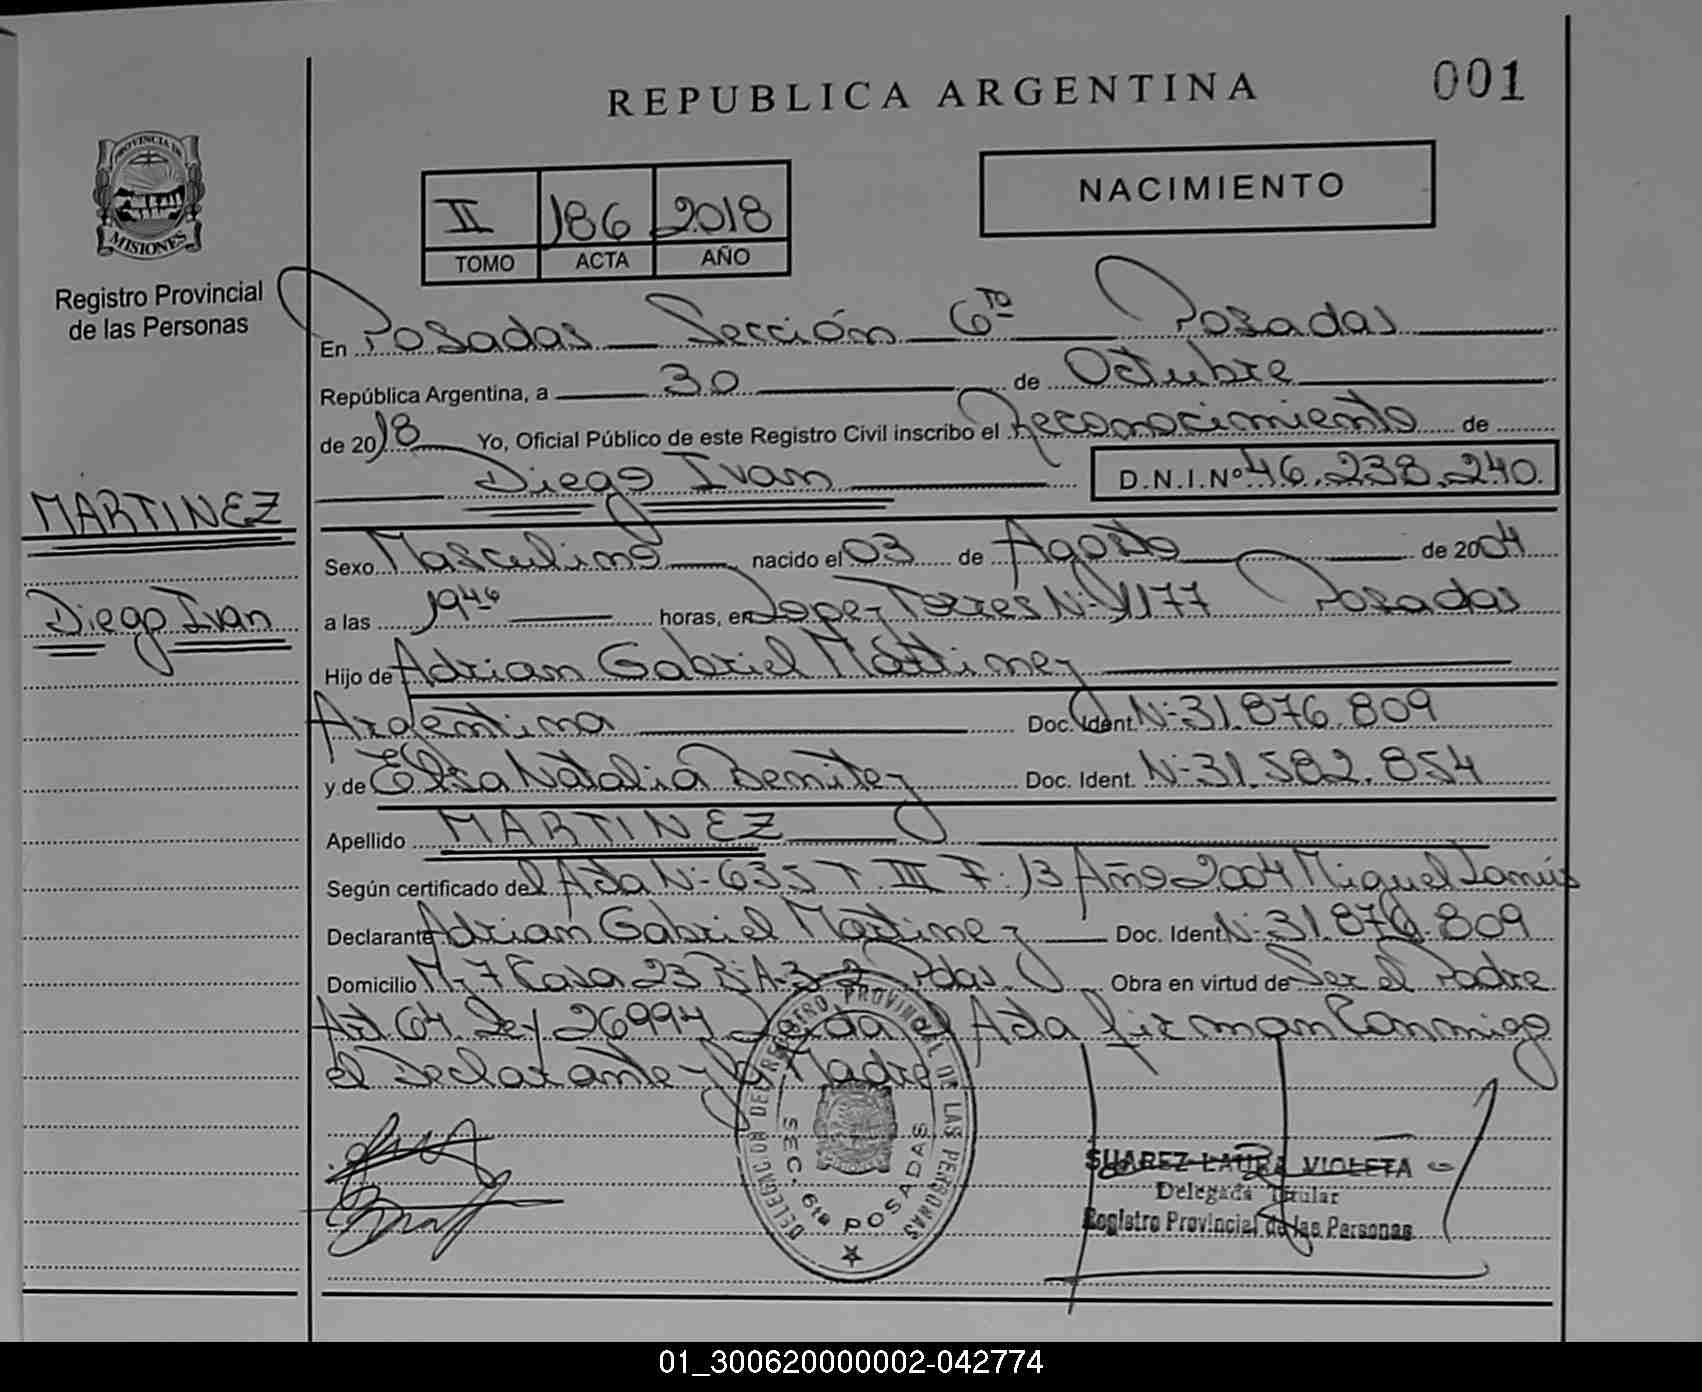 REPUBLICA ARGENTINA
001
PROVINCIA DE
MISIONES
Registro Provincial
de las Personas
II 186 2018
TOMO ACTA AÑO
NACIMIENTO
En Posadas Sección 6TO Posadas
República Argentina, a 30 de Octubre
de 2018 Yo, Oficial Público de este Registro Civil inscribo el Reconocimiento de
Diego Ivan D.N.I.Nº 46.238.240.
MARTINEZ
Diego Ivan
Sexo Masculino nacido el 03 de Agosto de 2004
a las 1946 horas, en Lopez Torres Nº 1177 Posadas
Hijo de Adrian Gabriel Martinez
Argentina Doc. Ident. Nº 31.876.809
y de Elsa Natalia Benitez Doc. Ident. Nº 31.582.854
Apellido MARTINEZ
Según certificado del Acta Nº 635 T. III F. 13 Año 2004 Miguel Lanús
Declarante Adrian Gabriel Martinez Doc. Ident Nº 31.876.809
Domicilio M-7 Casa 23 A-3-2 Pdas. Obra en virtud de Ser el Padre
Art 64. Ley 26994 Leida el Acta firman Conmigo
el Declarante y la Madre
DELEGACION DEL REGISTRO PROVINCIAL DE LAS PERSONAS
SEC. 6ta POSADAS
SUAREZ LAURA VIOLETA
Delegada Titular
Registro Provincial de las Personas
01_300620000002-042774